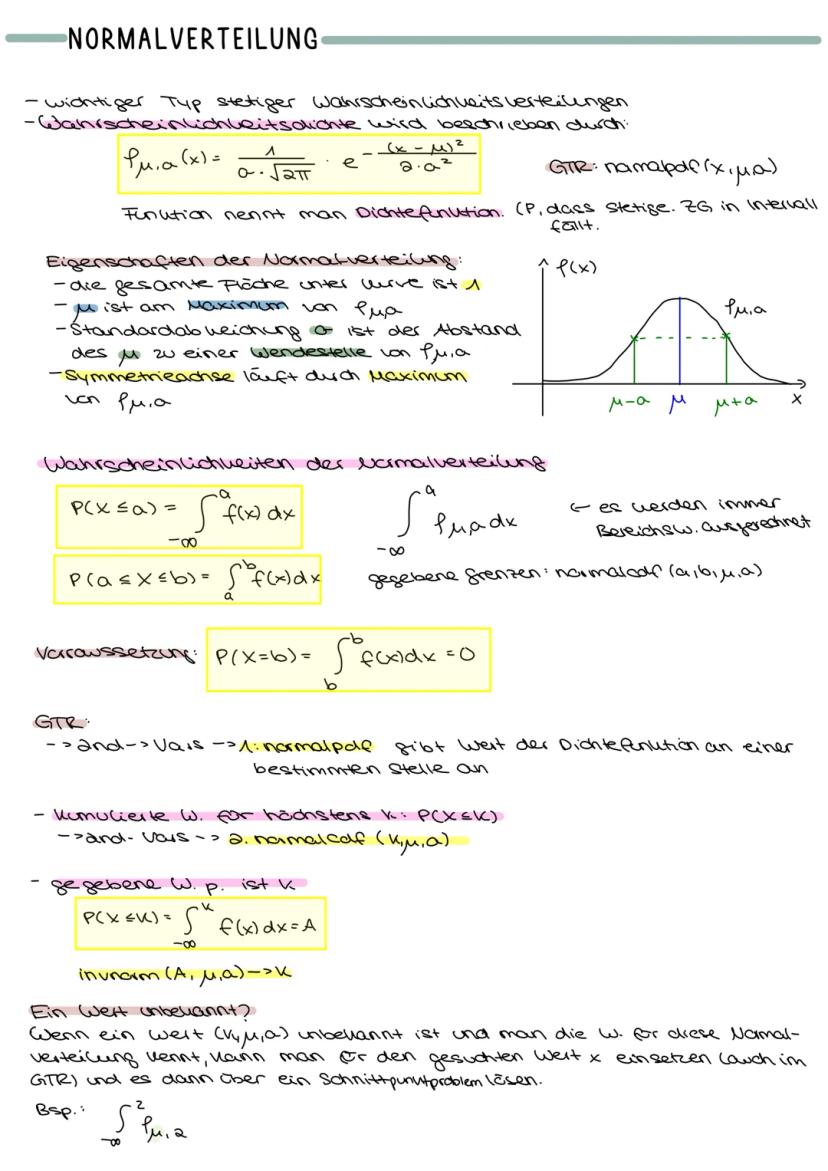 NORMALVERTEILUNG
- wichtiger Typ stetiger Wahrscheinlichkeitsverteilungen
- Wahrscheinlichkeitsdichte wird beschrieben durch:
φμ,σ(x) = 1/(σ·√2π) · e^-((x-μ)²/(2·σ²))
GTR: normalpdf(x,μ,σ)
Funktion nennt man Dichtefunktion. (P, dass stetige. ZG in Intervall
fällt.
Eigenschaften der Normalverteilung:
- die gesamte Fläche unter Kurve ist 1
- μ ist am Maximum von φμσ
- Standardabweichung σ ist der Abstand
des μ zu einer Wendestelle von φμ,σ
- Symmetrieachse läuft durch Maximum
von φμ,σ
φ(x)
φμ,σ
μ-σ μ μ+σ x
Wahrscheinlichkeiten der Normalverteilung
P(X ≤ a) = ∫_{-∞}^{a} f(x) dx
∫_{-∞}^{a} φμ,σ dx
← es werden immer
Bereichsw. ausgerechnet
P(a ≤ X ≤ b) = ∫_{a}^{b} f(x) dx
gegebene Grenzen: normalcdf (a,b,μ,σ)
Vorraussetzung: P(X=b) = ∫_{b}^{b} f(x)dx = 0
GTR:
-> 2nd -> Vars -> 1: normalpdf gibt Wert der Dichtefunktion an einer
bestimmten Stelle an
- Kumulierte W. für höchstens k: P(X≤K)
-> 2nd- Vars -> 2. normalcdf (k,μ,σ)
- gegebene W. p. ist k
P(X ≤ K) = ∫_{-∞}^{k} f(x) dx = A
invnorm (A, μ,σ) -> k
Ein Wert unbekannt?
Wenn ein Wert (k,μ,σ) unbekannt ist und man die W. für diese Normal-
verteilung kennt, kann man für den gesuchten Wert x einsetzen (auch im
GTR) und es dann über ein Schnittpunktproblem lösen.
Bsp.: ∫_{-∞}^{2} φμ,2